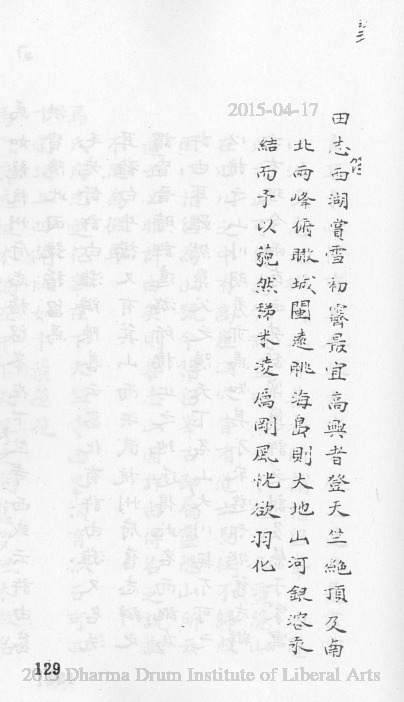 田志西湖賞雪初霽最宜高興者登天竺絕頂及南
北兩峰俯瞰城闉遠眺海島則大地山河銀溶汞
結而予以藐然稊米凌爲剛風恍欲羽化
129
2015-04-17
2015 Dharma Drum Institute of Liberal Arts